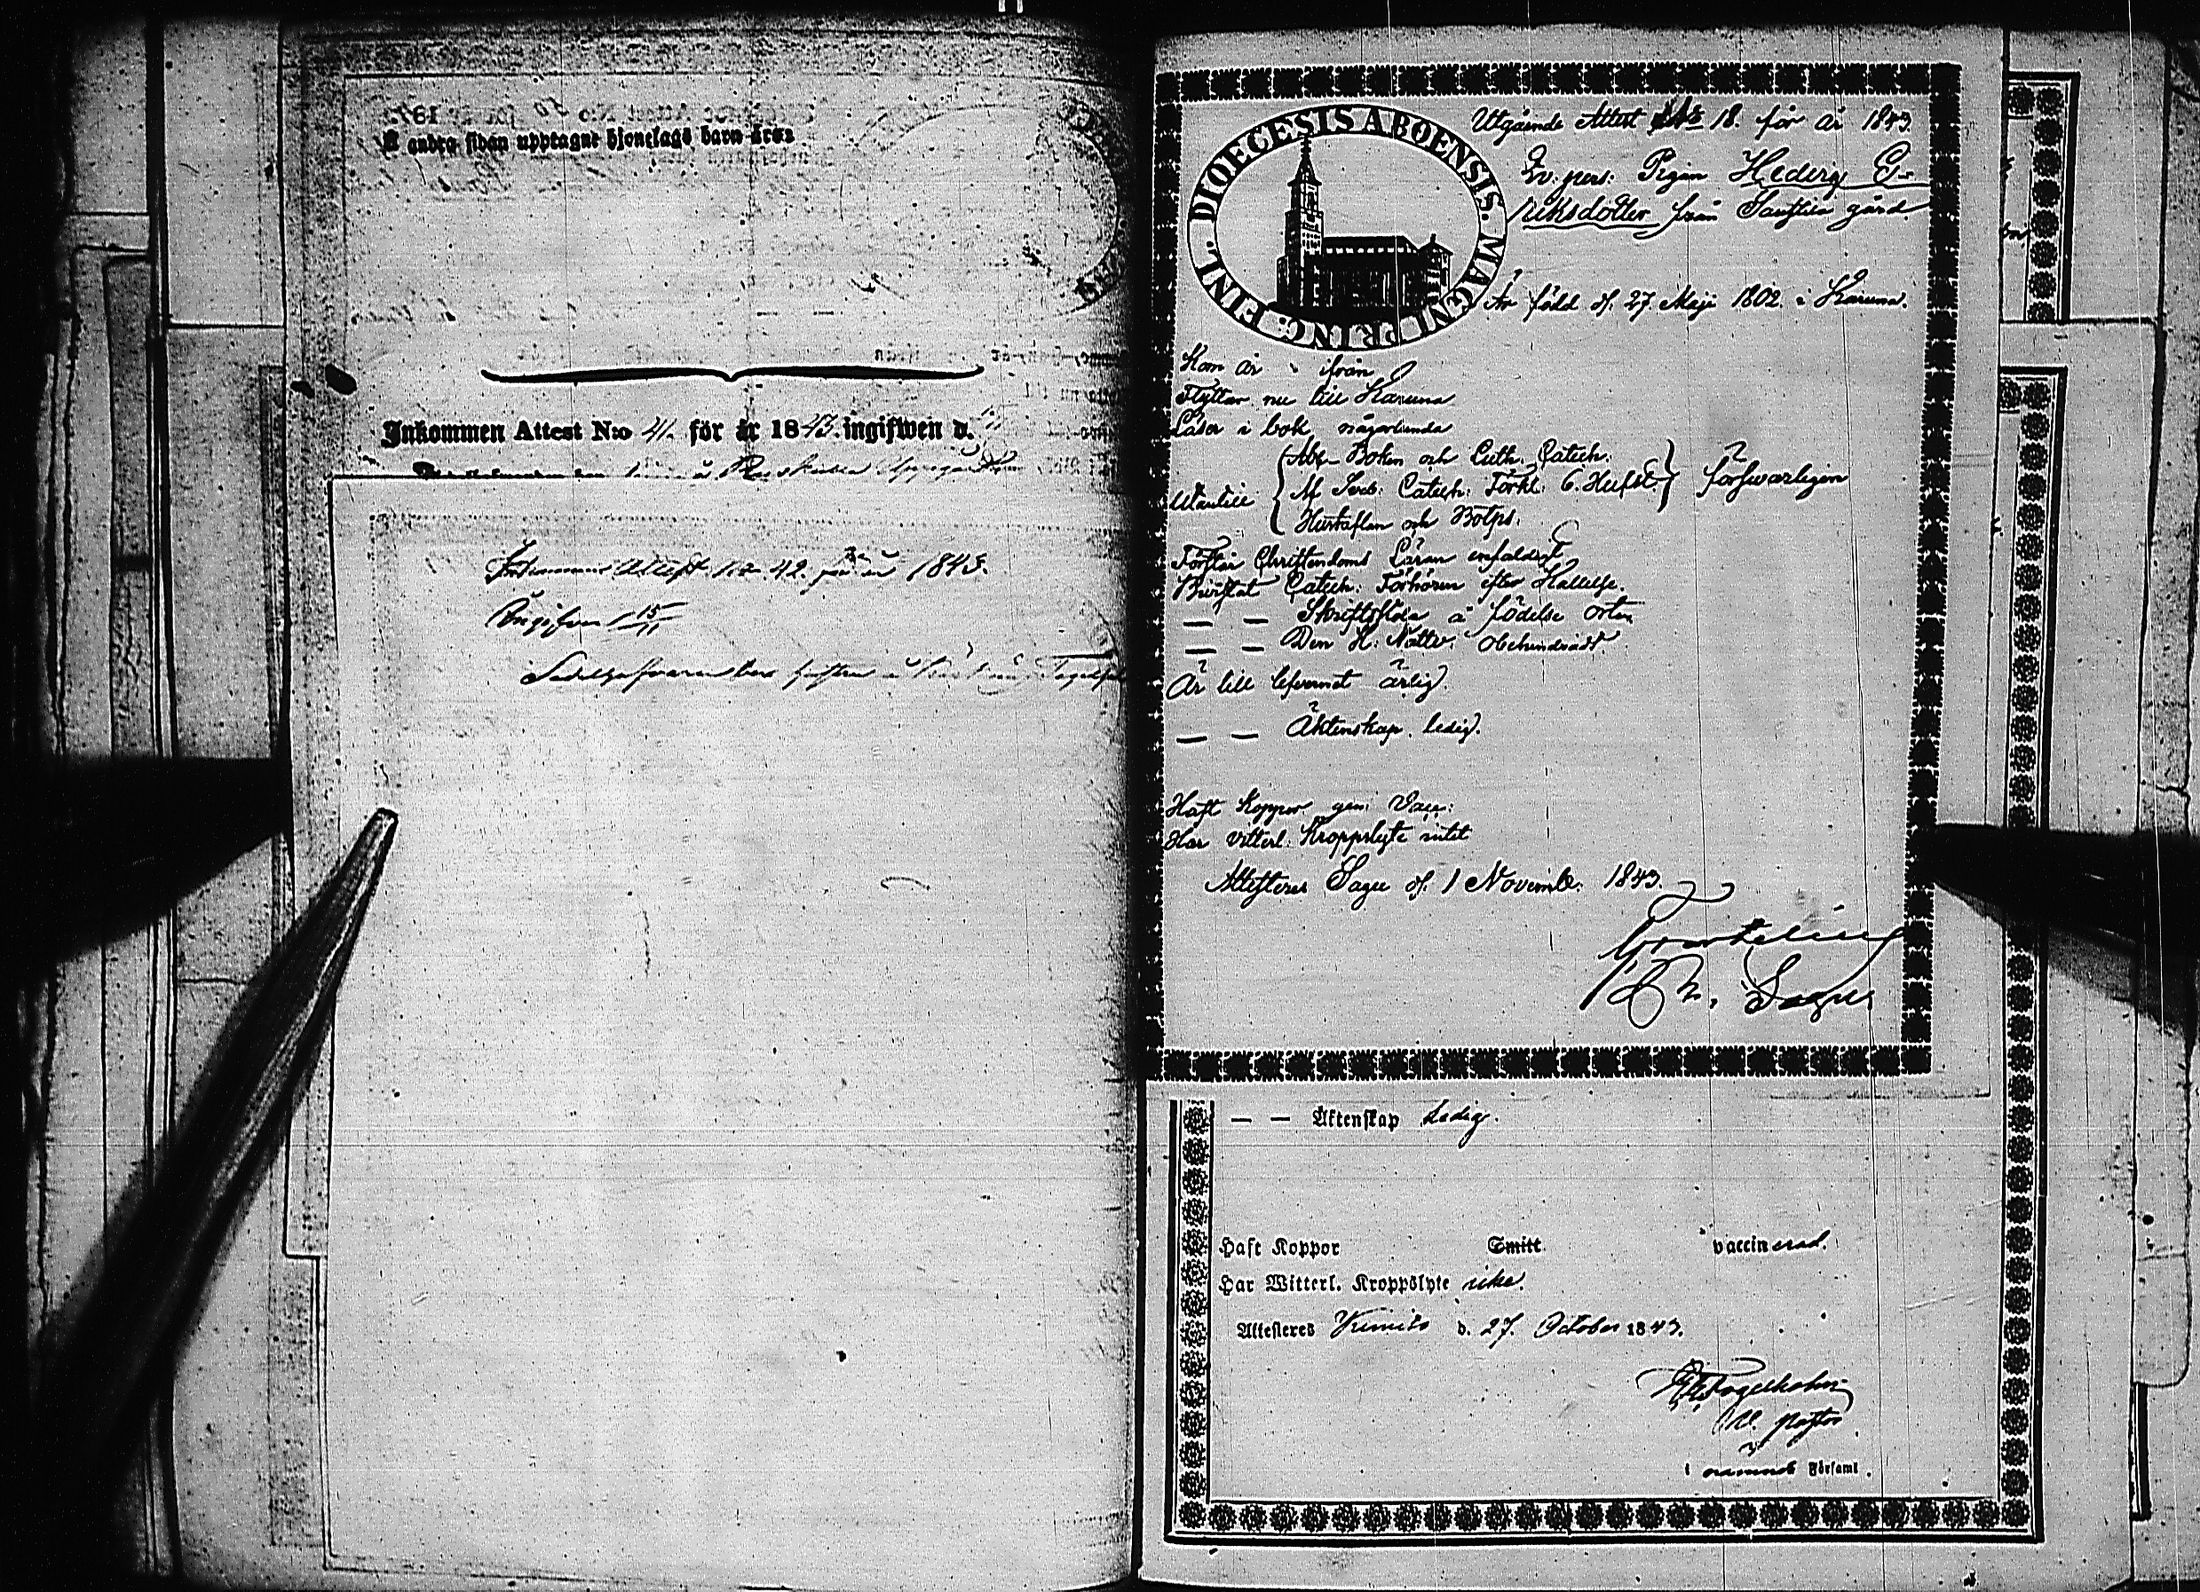 Å andra sidan upptagne hjonelags barn äro:
Inkommen Attest N:o 41. för år 1843. ingifwen d.
Inkommen Attest N:o 42. för år 1843.
Ingifven d 15/11
DIOECESIS ABOENSIS. MAGNI PRINC: FINL.
Utgående Attest N:o 18. för år 1843.
Öv. pers: Pigan Hedvig E-
riksdotter från gård.
Är född d. 27 Maji 1802 i Karuna.
Kom år ifrån
Flyttar nu till Karuna
Läser i bok någorlunda
Utantill
Abc-Boken och Luth. Catech.
Af Sveb: Catech: Förkl: 6. Hufst.
Hustaflan och Botps.
försvarligen
Förstår Christendoms Läran enfaldigt
Bivistat Catech: Förhören efter Kallelse.
— — Skriftskola å födelse orten
— — Den H: Nattv: obehindradt.
Är till lefvernet ärlig.
— — Äktenskap ledig.
Haft Koppor gen: Vacc:
Har vitterl: Kroppslyte intet
Attesteras Sagu d. 1 Novemb: 1843.
— — Äktenskap Ledig.
Haft Koppor Smitt vaccinerad.
Har Witterl. Kroppslyte icke.
Attesteres Kimito d. 27. October 1843.
i Församl.